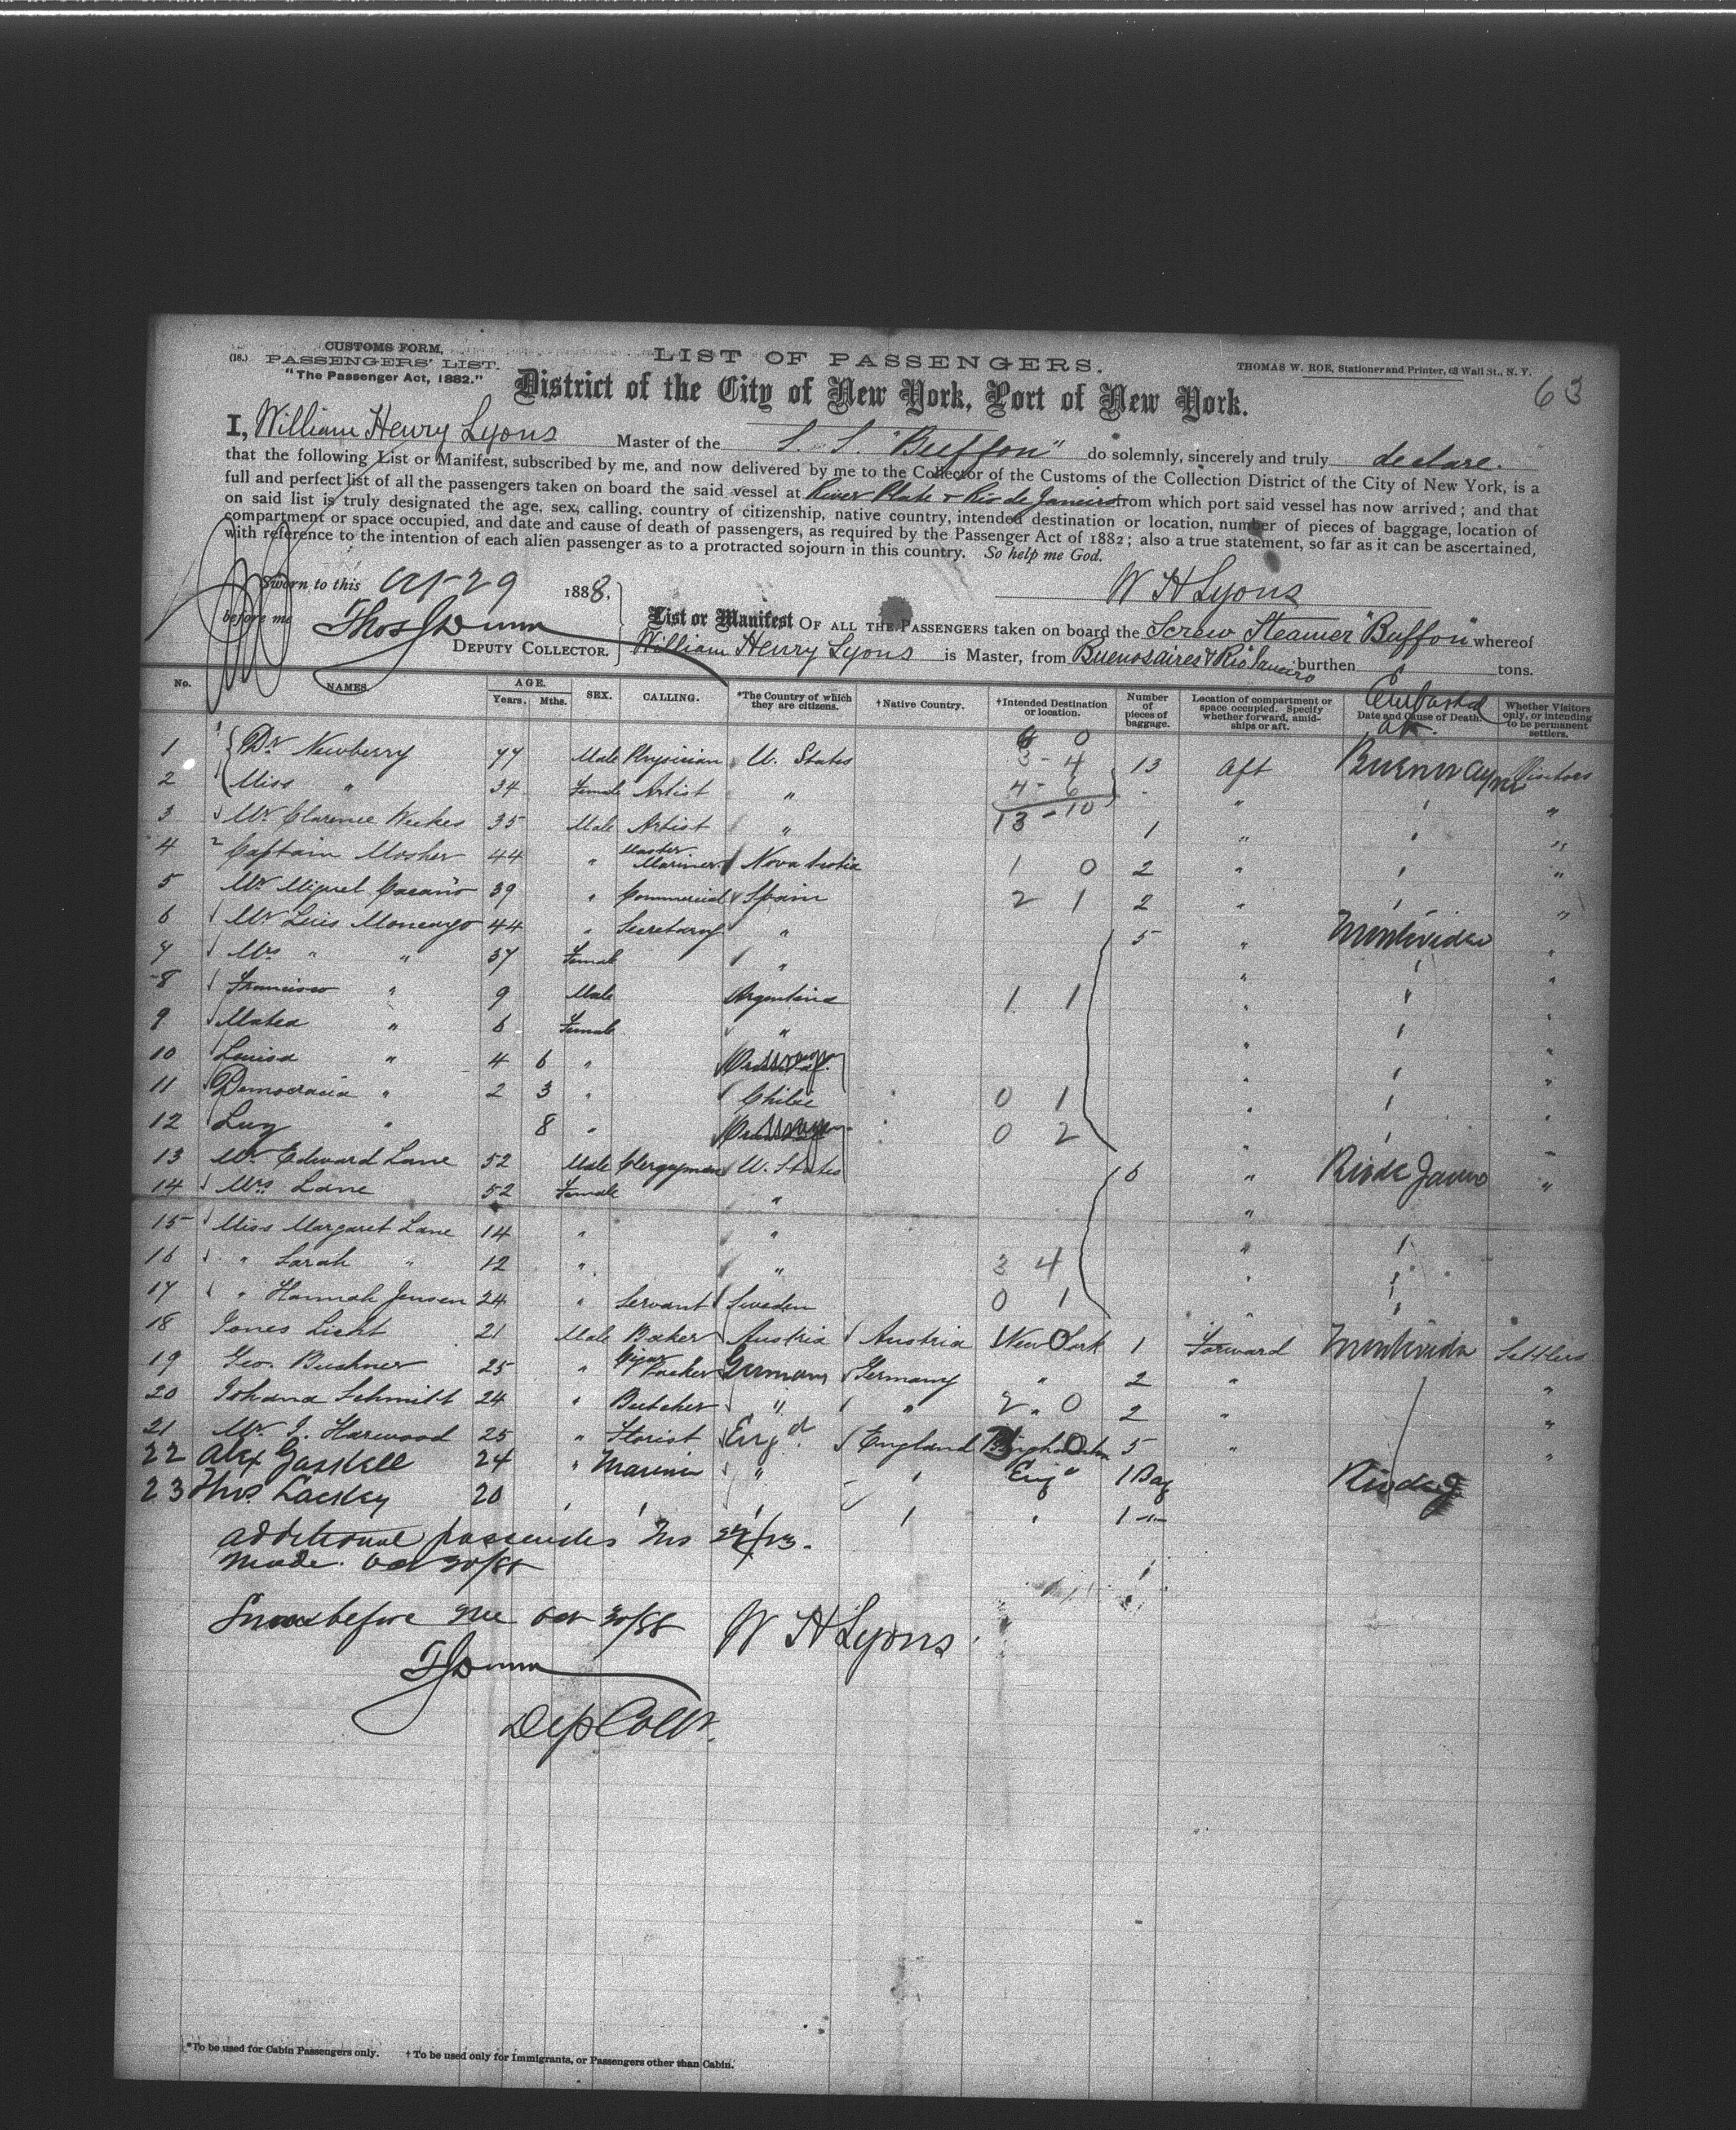 CUSTOMS FORM,
(18.) PASSENGERS' LIST.
"The Passenger Act, 1882."
LIST OF PASSENGERS.
THOMAS W. ROE, Stationer and Printer, 63 Wall St., N. Y.
63
District of the City of New York, Port of New York.
I, William Henry Lyons Master of the S. S. "Buffon" do solemnly, sincerely and truly declare.
that the following List or Manifest, subscribed by me, and now delivered by me to the Collector of the Customs of the Collection District of the City of New York, is a
full and perfect list of all the passengers taken on board the said vessel at River Plate & Rio de Janeiro from which port said vessel has now arrived; and that
on said list is truly designated the age, sex, calling, country of citizenship, native country, intended destination or location, number of pieces of baggage, location of
compartment or space occupied, and date and cause of death of passengers, as required by the Passenger Act of 1882; also a true statement, so far as it can be ascertained,
with reference to the intention of each alien passenger as to a protracted sojourn in this country. So help me God.
Sworn to this Oct 29 1888,
W H Lyons
before me Thos J Dunn
DEPUTY COLLECTOR.
List or Manifest OF ALL THE PASSENGERS taken on board the Screw Steamer "Buffon" whereof
William Henry Lyons is Master, from Buenosaires & Rio Janeiro burthen tons.
No. NAMES. AGE. Years. Mths. SEX. CALLING. *The Country of which they are citizens. †Native Country. †Intended Destination or location. Number of pieces of baggage. Location of compartment or space occupied. Specify whether forward, amidships or aft. Date and Cause of Death. Whether Visitors only, or intending to be permanent settlers.
Embarked at.
6 0
1 Dr Newberry 77 Male Physician U. States 3-4 13 Aft Buenos Ayres Visitors
2 Miss " 34 Female Artist " 4-6 " "
13-10
3 Mr Clarence Weekes 35 Male Artist " 1 " "
4 Captain Mosher 44 " Master Mariner Nova Scotia 1 0 2 " "
5 Mr Miguel 39 " Commercial Spain 2 1 2 " "
6 Mr Luis Moncayo 44 " Secretary " 5 " Montevideo "
7 Mrs " " 37 Female " " "
8 Francisco " 9 Male Argentina 1 1 " "
9 Matea " 6 Female " " "
10 Louisa " 4 6 " " "
11 Democracia " 2 3 " Chile 0 1 " "
12 Luz " 8 " 0 2 "
13 Mr Edward Lane 52 Male Clergyman U. States 6 " Rio de Janeiro "
14 Mrs Lane 52 Female " "
15 Miss Margaret Lane 14 " " "
16 " Sarah " 12 " " 3 4 "
17 " Hannah Jensen 24 " Servant Sweden 0 1 "
18 Licht 21 Male Baker Austria Austria New York 1 Forward Montevideo Settlers
19 Geo. Bushner 25 " Cigar Packer Germany Germany " 2 " "
20 Johana Schmitt 24 " Butcher " " 2 0 2 " "
21 Mr J. Harwood 25 " Florist Engd England 5 " "
22 Alex Gaskell 24 " Mariner " Engd 1 Bag Rio de J
23 Thos Lackey 20 1
additional passengers Nos 22/23.
made Oct 30/88
Sworn before me Oct 30/88 W H Lyons
T J Dunn
Dep Collr.
*To be used for Cabin Passengers only. †To be used only for Immigrants, or Passengers other than Cabin.